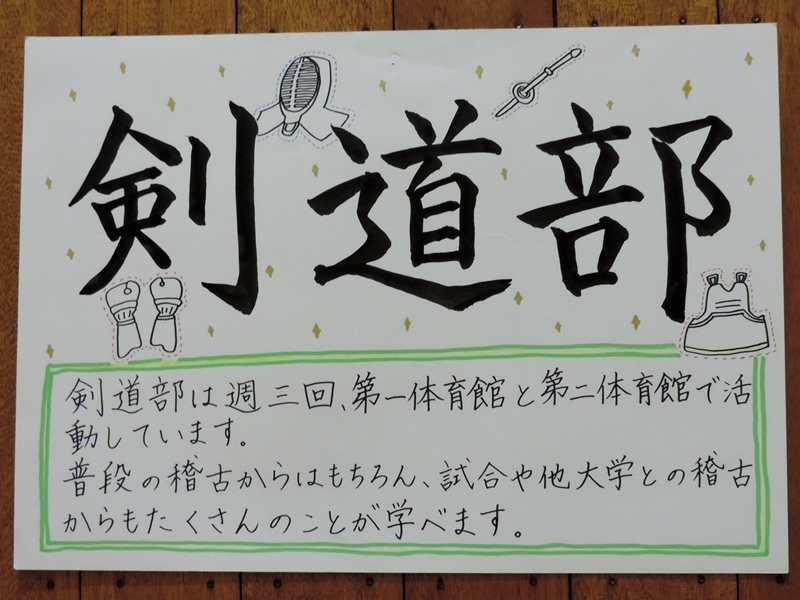 剣道部
剣道部は週三回、第一体育館と第二体育館で活
動しています。
普段の稽古からはもちろん、試合や他大学との稽古
からもたくさんのことが学べます。